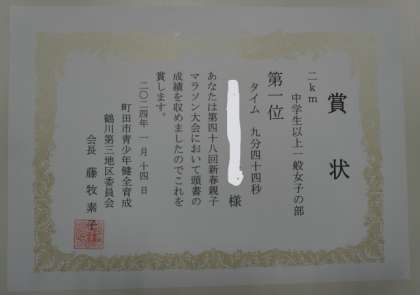 賞状
二km
中学生以上一般女子の部
第一位
タイム 九分四十四秒
様
あなたは第四十八回新春親子
マラソン大会において頭書の
成績を収めましたのでこれを
賞します。
二〇二四年 一月 十四日
町田市青少年健全育成
鶴川第三地区委員会
会長 藤牧素子